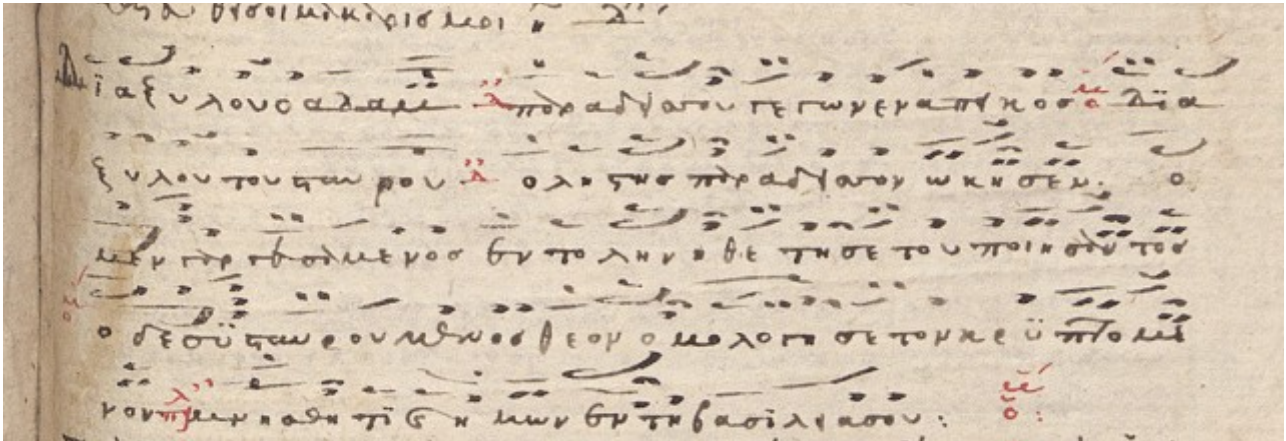 μακαρισμοι
Δϊα ξυλου ο αδαμ παραδεισου γεγωνεν απηκοσ δϊα
ξυλου του σταυρου ο ληστησ παραδεισον ωκησεν: ο
μεν γαρ γευσαμενοσ εντολην ηθετησε του ποιησαντοσ
ο δε σϋσταυρουμενοσ θεον ομολογησε τον κρϋπτομε
νον μνησθητι ημων εν τη βασιλεια σου: